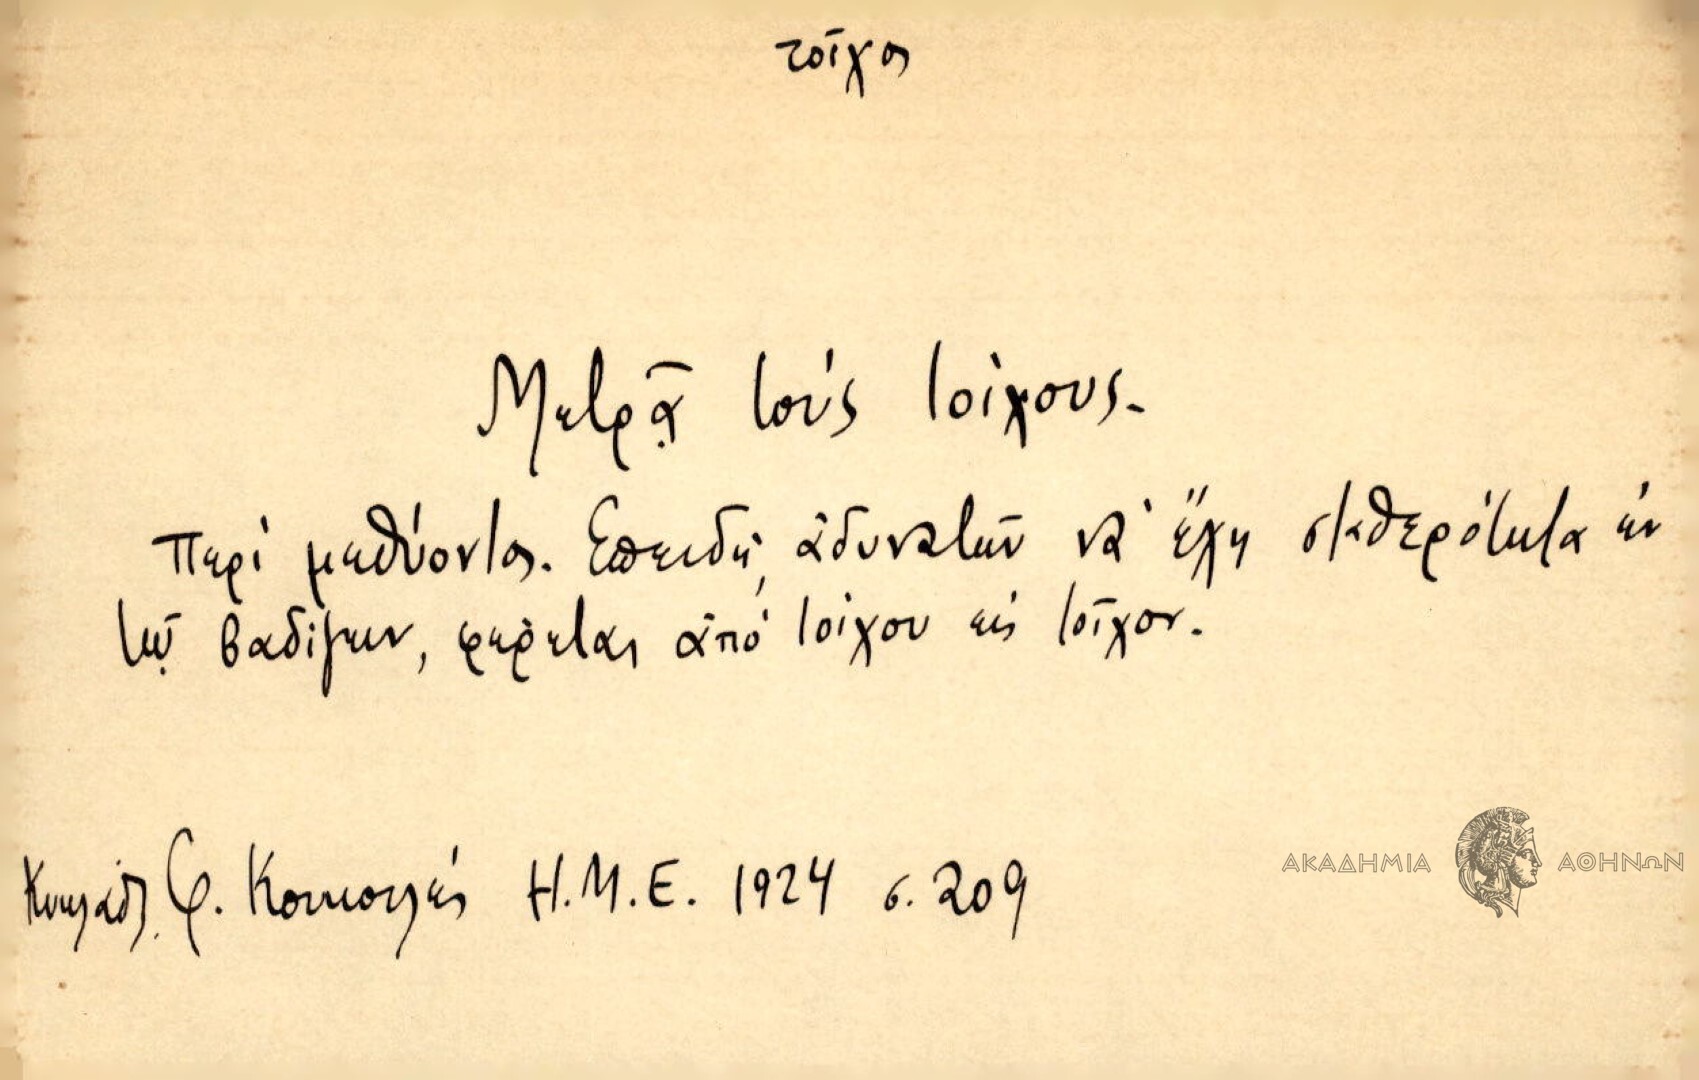 τοῖχος
Μετρᾷ τούς τοίχους.
Περί μεθύοντος. Επειδή, ἀδυνατῶν νά ἔχη σταθερότητα ἐν
τῷ βαδίζειν, φέρεται ἀπό τοίχου εἰς τοῖχον.
Κυκλάδ. Φ. Κουκουλές Η.Μ.Ε. 1924 σ. 209
ΑΚΑΔΗΜΙΑ ΑΘΗΝΩΝ